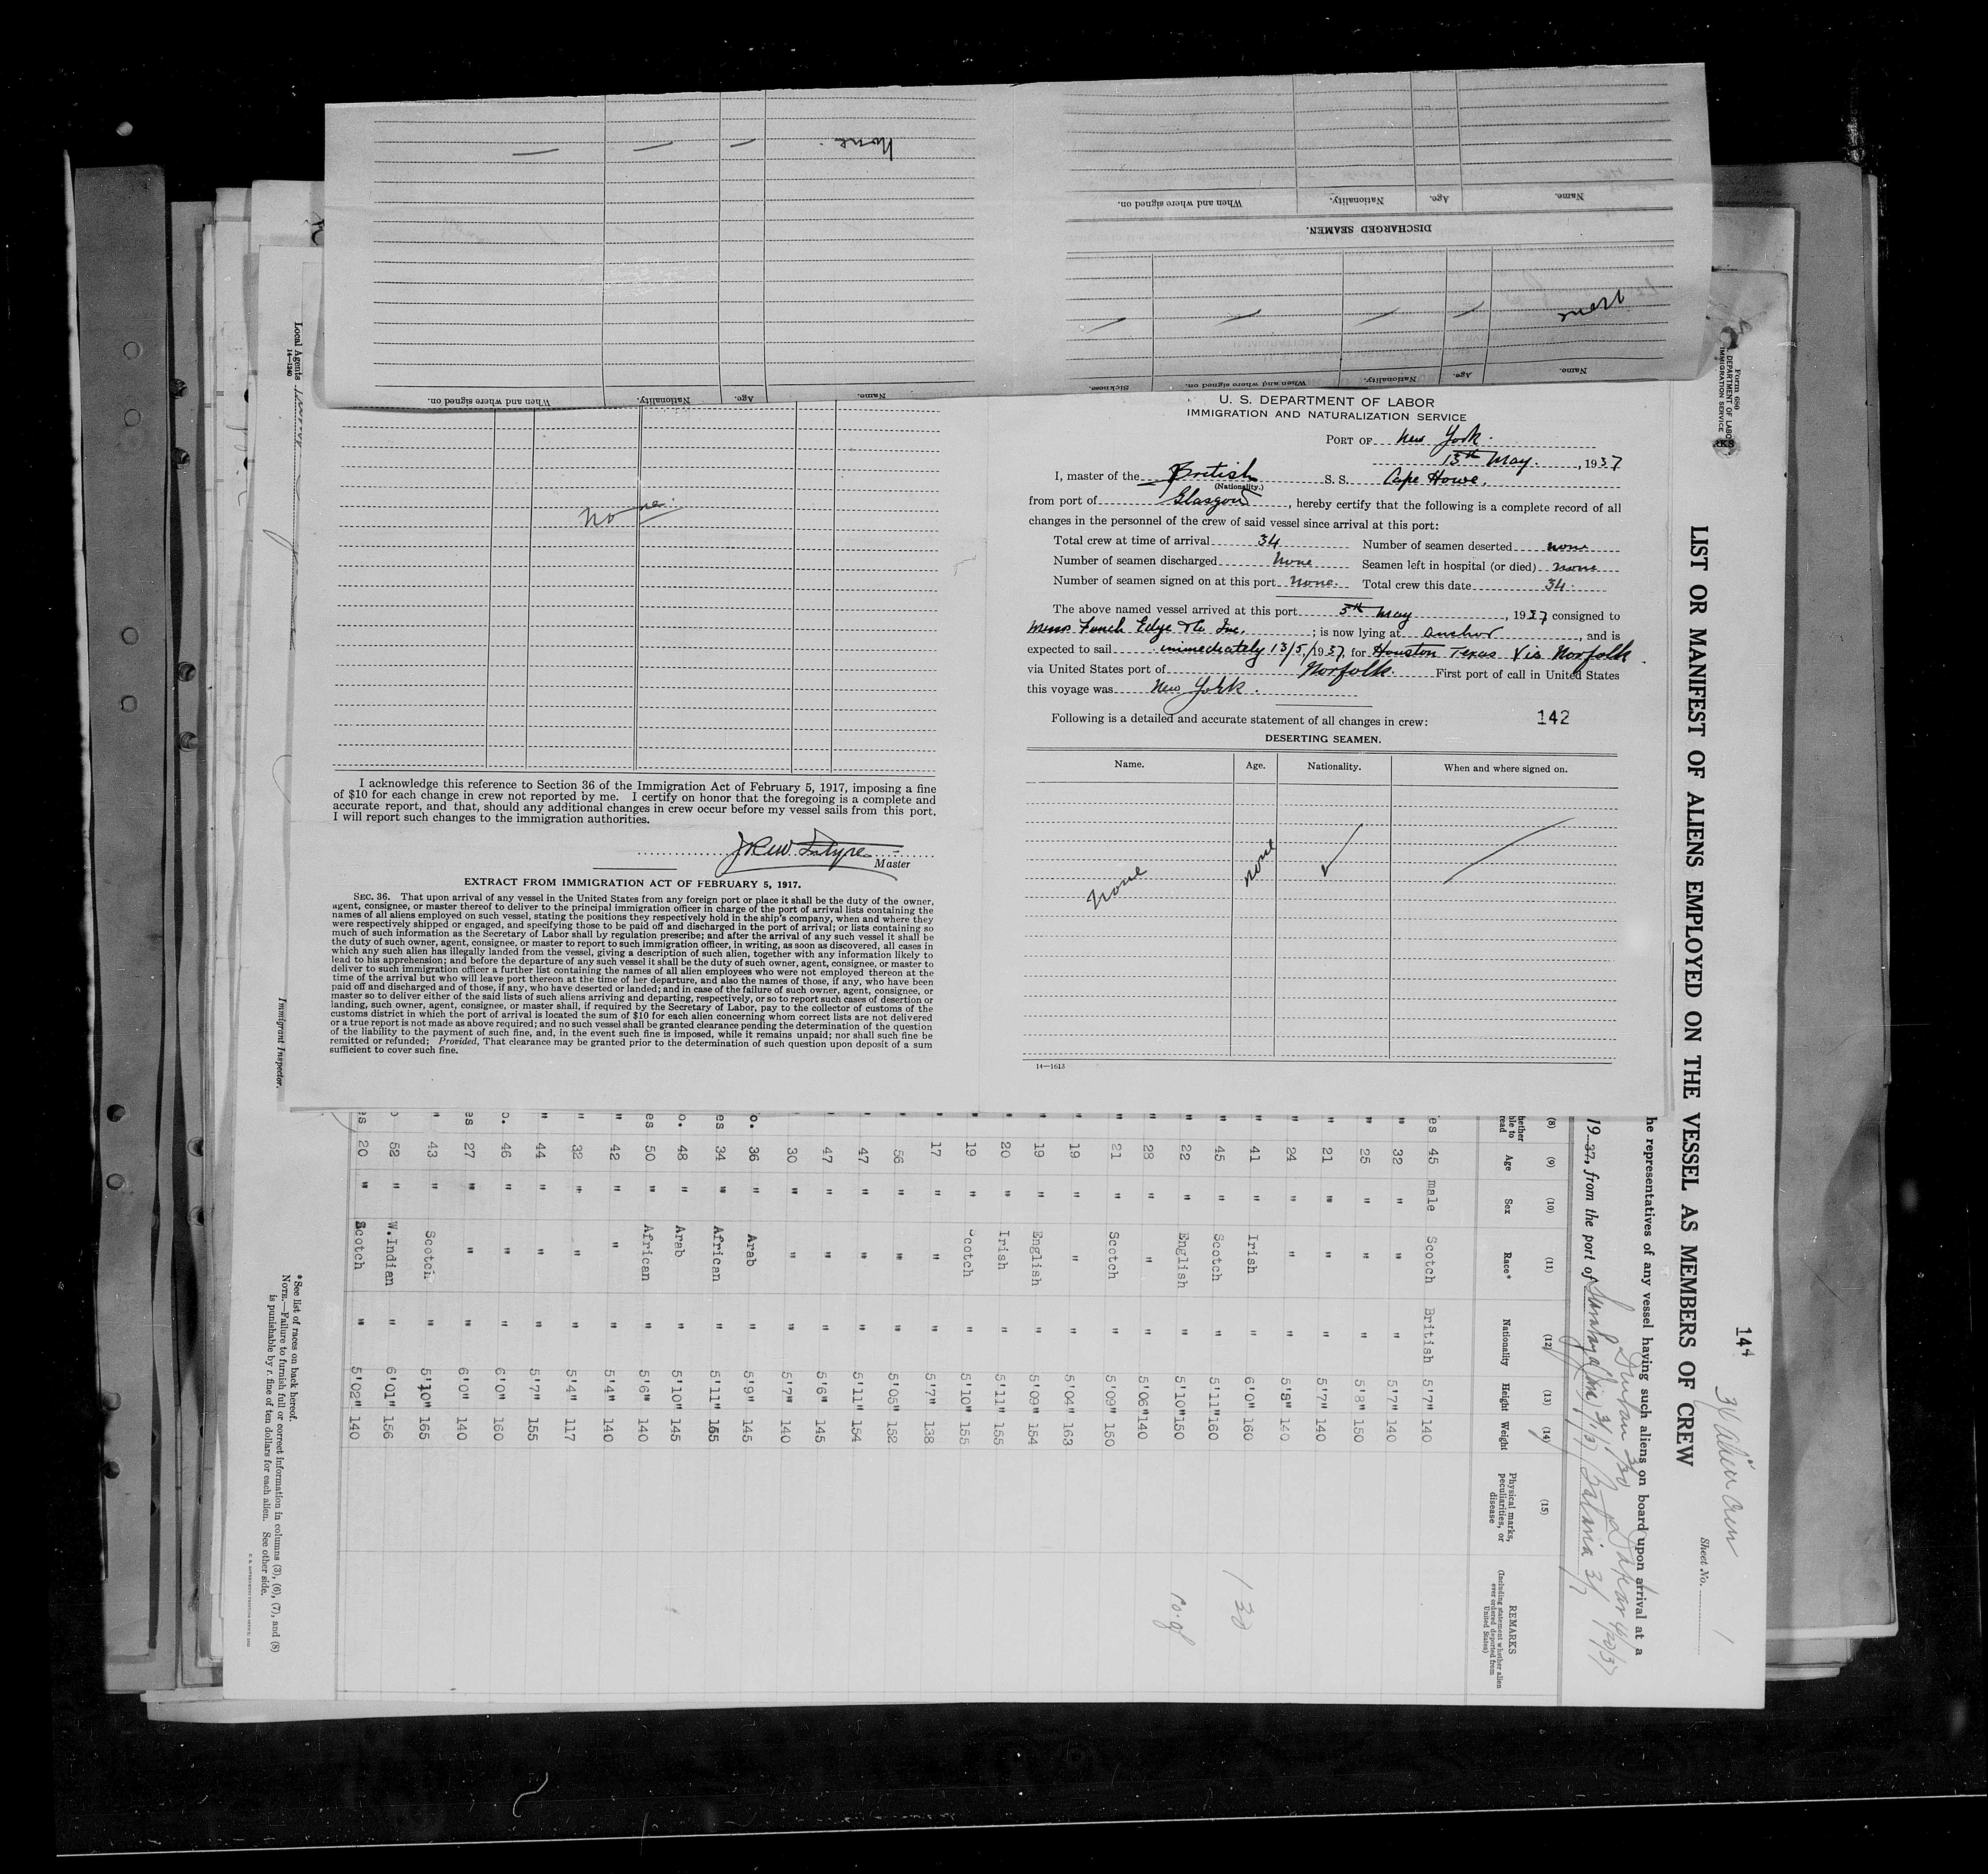 none
When and where signed on.
Nationality.
Age.
Name.
When and where signed on.
Nationality.
Age.
Name.
DISCHARGED SEAMEN.
None
Sickness.
When and where signed on.
Nationality.
Age.
Name.
none
I acknowledge this reference to Section 36 of the Immigration Act of February 5, 1917, imposing a fine
of $10 for each change in crew not reported by me. I certify on honor that the foregoing is a complete and
accurate report, and that, should any additional changes in crew occur before my vessel sails from this port,
I will report such changes to the immigration authorities.
Master
EXTRACT FROM IMMIGRATION ACT OF FEBRUARY 5, 1917.
SEC. 36. That upon arrival of any vessel in the United States from any foreign port or place it shall be the duty of the owner,
agent, consignee, or master thereof to deliver to the principal immigration officer in charge of the port of arrival lists containing the
names of all aliens employed on such vessel, stating the positions they respectively hold in the ship's company, when and where they
were respectively shipped or engaged, and specifying those to be paid off and discharged in the port of arrival; or lists containing so
much of such information as the Secretary of Labor shall by regulation prescribe; and after the arrival of any such vessel it shall be
the duty of such owner, agent, consignee, or master to report to such immigration officer, in writing, as soon as discovered, all cases in
which any such alien has illegally landed from the vessel, giving a description of such alien, together with any information likely to
lead to his apprehension; and before the departure of any such vessel it shall be the duty of such owner, agent, consignee, or master to
deliver to such immigration officer a further list containing the names of all alien employees who were not employed thereon at the
time of the arrival but who will leave port thereon at the time of her departure, and also the names of those, if any, who have been
paid off and discharged and of those, if any, who have deserted or landed; and in case of the failure of such owner, agent, consignee, or
master so to deliver either of the said lists of such aliens arriving and departing, respectively, or so to report such cases of desertion or
landing, such owner, agent, consignee, or master shall, if required by the Secretary of Labor, pay to the collector of customs of the
customs district in which the port of arrival is located the sum of $10 for each alien concerning whom correct lists are not delivered
or a true report is not made as above required; and no such vessel shall be granted clearance pending the determination of the question
of the liability to the payment of such fine, and, in the event such fine is imposed, while it remains unpaid; nor shall such fine be
remitted or refunded; Provided, That clearance may be granted prior to the determination of such question upon deposit of a sum
sufficient to cover such fine.
U. S. DEPARTMENT OF LABOR
IMMIGRATION AND NATURALIZATION SERVICE
PORT OF New York.
13th May., 1937
I, master of the British S. S. Cape Howe,
(Nationality.)
from port of Glasgow, hereby certify that the following is a complete record of all
changes in the personnel of the crew of said vessel since arrival at this port:
Total crew at time of arrival 34 Number of seamen deserted none
Number of seamen discharged None Seamen left in hospital (or died) none
Number of seamen signed on at this port None. Total crew this date 34.
The above named vessel arrived at this port 5th May, 1937 consigned to
Messrs Funch Edye & Co Inc.; is now lying at anchor, and is
expected to sail immediately 13/5/1937, for Houston Texas Via Norfolk
via United States port of Norfolk. First port of call in United States
this voyage was New York.
Following is a detailed and accurate statement of all changes in crew: 142
DESERTING SEAMEN.
Name. Age. Nationality. When and where signed on.
None none
14—1613
Local Agents
14—1240
Immigrant Inspector.
Form 680
DEPARTMENT OF LABOR
IMMIGRATION SERVICE
144
34 Alien Crew
Sheet No. 1
LIST OR MANIFEST OF ALIENS EMPLOYED ON THE VESSEL AS MEMBERS OF CREW
he representatives of any vessel having such aliens on board upon arrival at a
Durban Dakar 4/20/37
19 37, from the port of Batavia
(8) (9) (10) (11) (12) (13) (14) (15)
hether ble to read Age Sex Race* Nationality Height Weight Physical marks, peculiarities, or disease REMARKS (Including statement whether alien ever ordered deported from United States)
es 45 male Scotch British 5'7" 140
" 32 " " " 5'7" 140
" 25 " " " 5'8" 150
" 21 " " " 5'7" 140
" 24 " " " 5'8" 140
" 41 " Irish " 6'0" 160
" 45 " Scotch " 5'11" 160
" 22 " English " 5'10" 150
" 28 " " " 5'06" 140
" 21 " Scotch " 5'09" 150
" 19 " " " 5'04" 163
" 19 " English " 5'09" 154
" 20 " Irish " 5'11" 155
" 19 " Scotch " 5'10" 155
" 17 " " " 5'7" 138
" 56 " " " 5'05" 152
" 47 " " " 5'11" 154
" 47 " " " 5'6" 145
" 30 " " " 5'7" 140
o. 36 " Arab " 5'9" 145
es 34 " African " 5'11" 155
o. 48 " Arab " 5'10" 145
es 50 " African " 5'6" 140
" 42 " " " 5'4" 140
" 32 " " " 5'4" 117
" 44 " " " 5'7" 155
o. 46 " " " 6'0" 160
es 27 " " " 6'0" 140
" 43 " Scotch " 5'10" 165
o 52 " W.Indian " 6'01" 156
es 20 " Scotch " 5'02" 140
* See list of races on back hereof.
NOTE.—Failure to furnish full or correct information in columns (3), (6), (7), and (8)
is punishable by a fine of ten dollars for each alien. See other side.